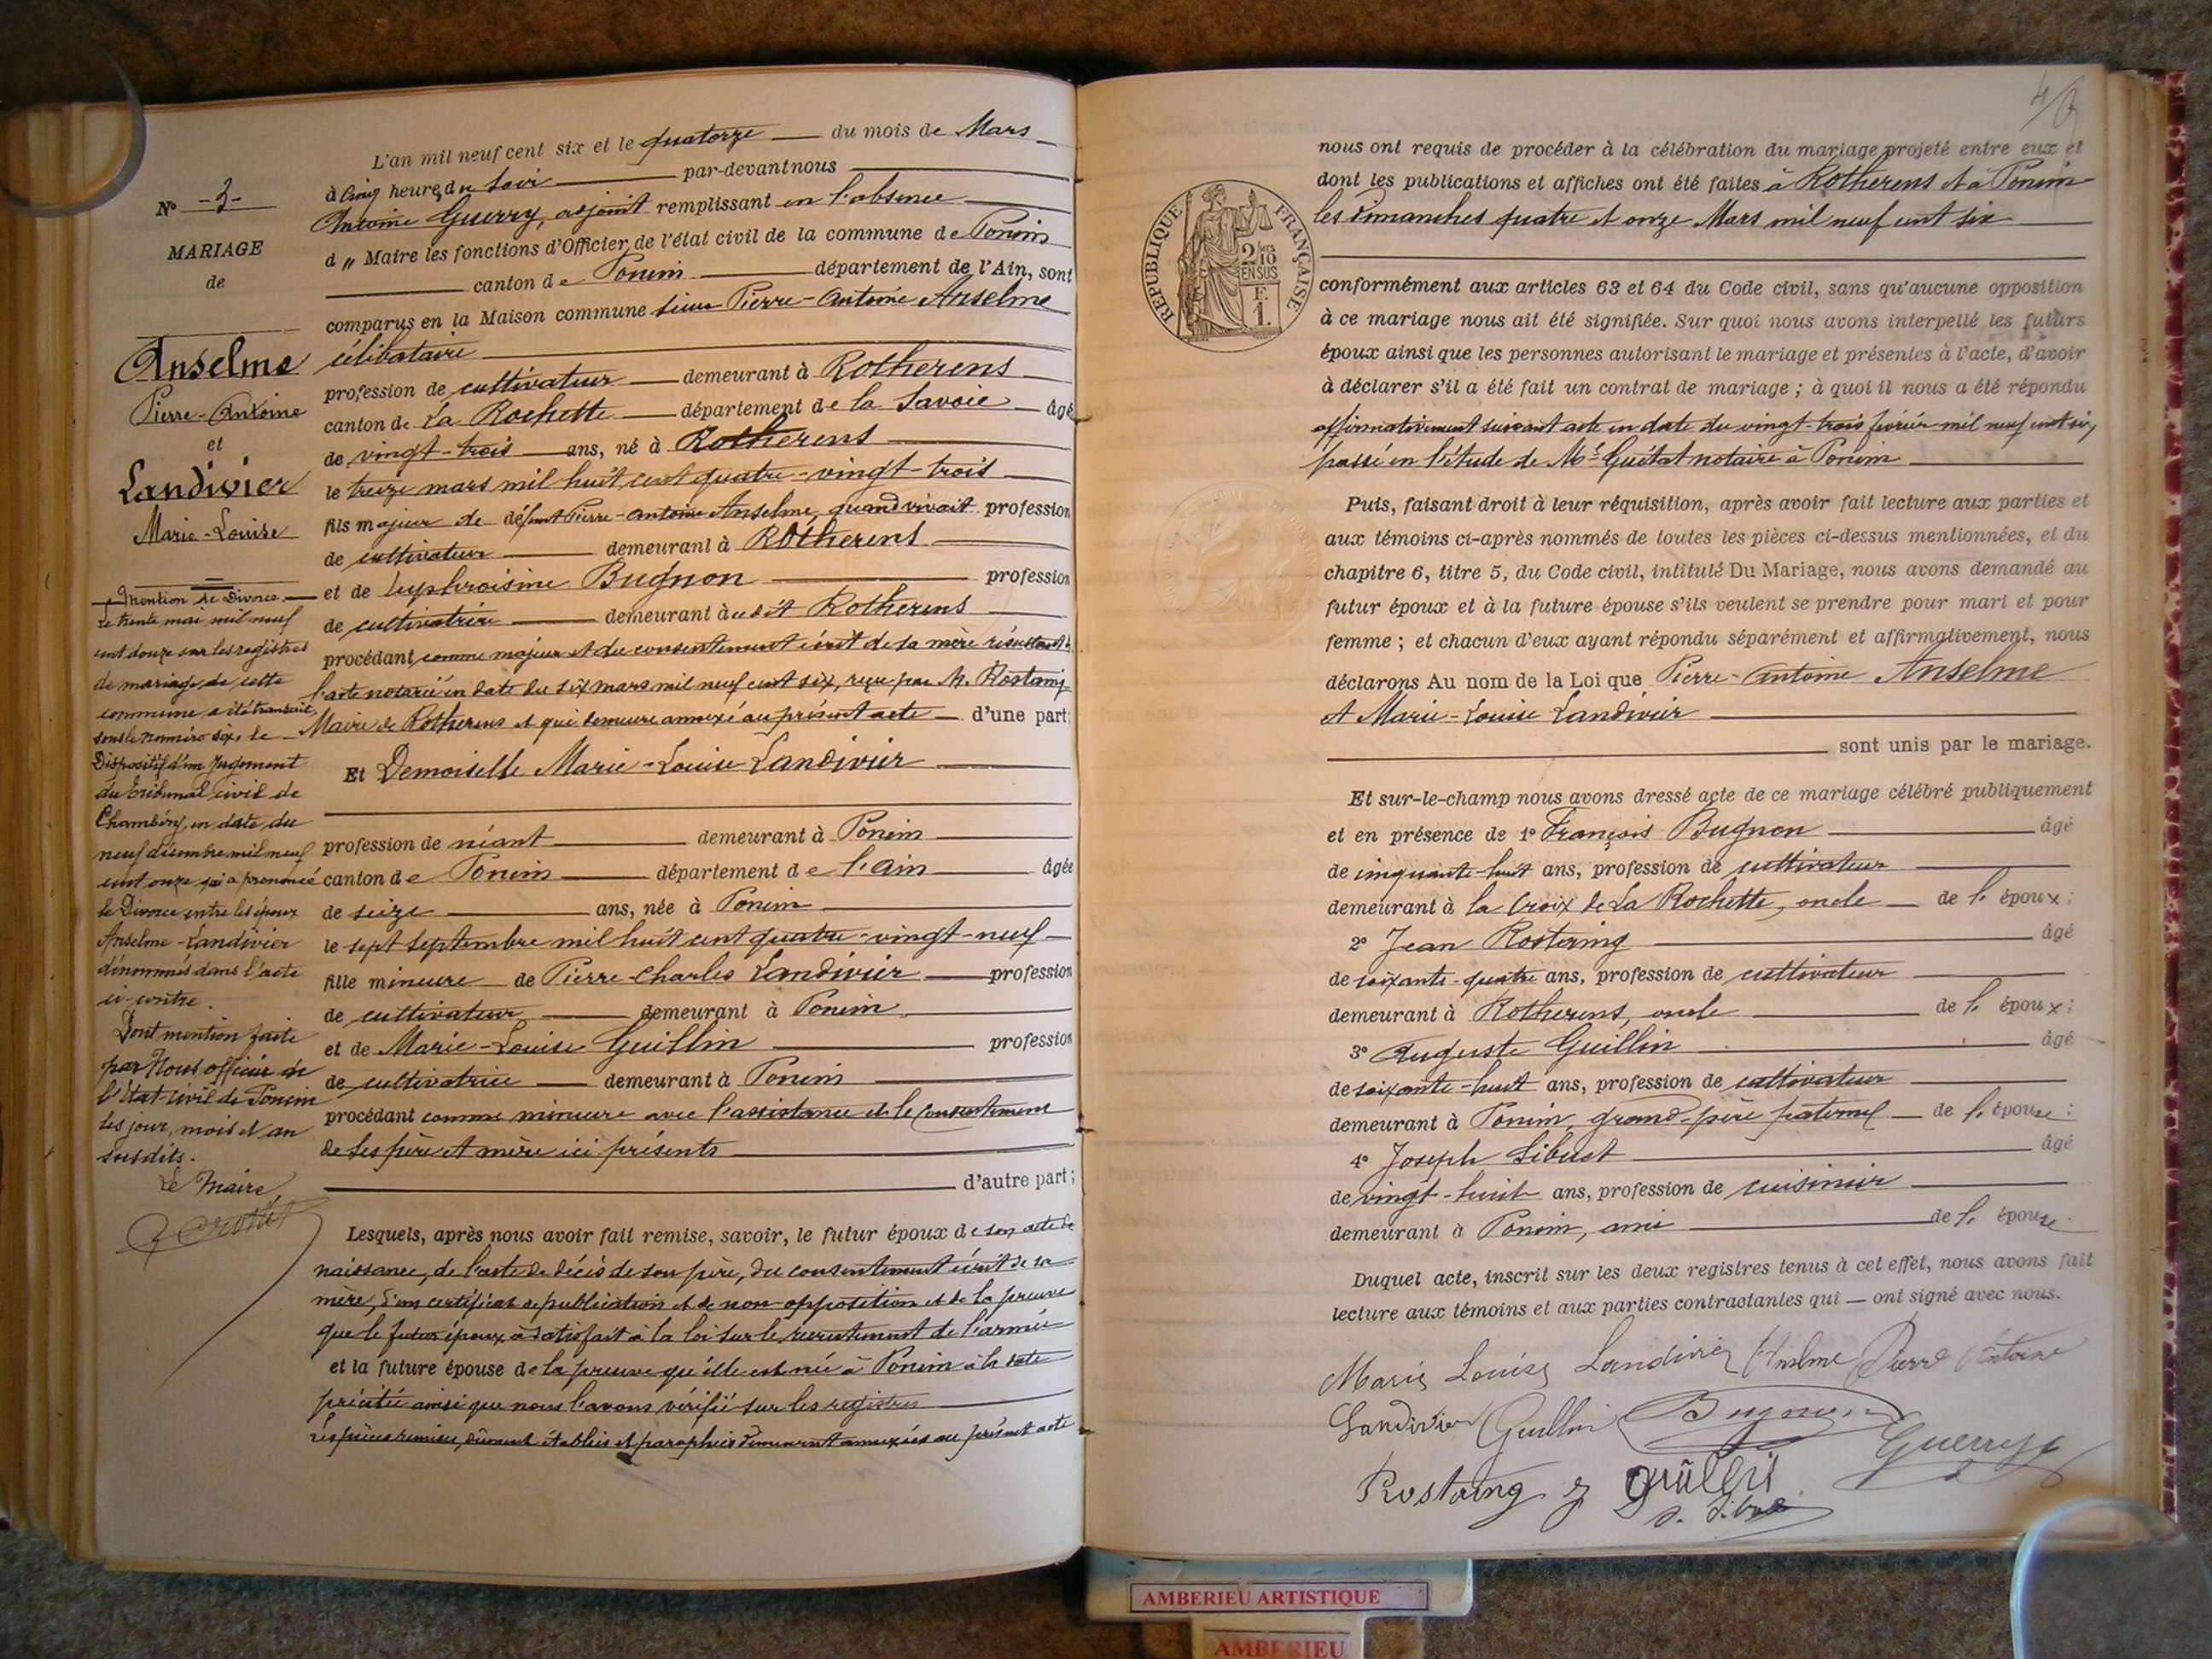 L'an mil neuf cent six et le quatorze du mois de Mars
à Cinq heures du Soir par-devant nous
Antoine Guerry, adjoint remplissant en l'absence
d " Maire les fonctions d'Officier de l'état civil de la commune de Poncin
canton de Poncin département de l'Ain, sont
comparus en la Maison commune sieur Pierre-Antoine Anselme
célibataire
profession de cultivateur demeurant à Rotherens
canton de La Rochette département de la Savoie âgé
de vingt-trois ans, né à Rotherens
le treize mars mil huit cent quatre-vingt-trois
fils majeur de défunt Pierre-Antoine Anselme, quand vivait profession
de cultivateur demeurant à Rotherens
et de Euphroisine Bugnon profession
de cultivatrice demeurant à Rotherens
procédant comme majeur et du consentement écrit de sa mère résultant de
l'acte notarié en date du six mars mil neuf cent six, reçu par M. Rostaing
Maire de Rotherens et qui demeure annexé au présent acte d'une part;
Et Demoiselle Marie-Louise Landivier
profession de néant demeurant à Poncin
canton de Poncin département de l'Ain âgée
de seize ans, née à Poncin
le sept Septembre mil huit cent quatre-vingt-neuf
fille mineure de Pierre-Charles Landivier profession
de cultivateur demeurant à Poncin
et de Marie-Louise Guillin profession
de cultivatrice demeurant à Poncin
procédant comme mineure avec l'assistance et le consentement
de ses père et mère ici présents
d'autre part;
Lesquels, après nous avoir fait remise, savoir, le futur époux de son acte de
naissance, de l'acte de décès de son père, du consentement écrit de sa
mère, d'un certificat de publication et de non-opposition et de la preuve
que le futur époux a satisfait à la loi sur le recrutement de l'armée
et la future épouse de la preuve qu'elle est née à Poncin à la date
précitée ainsi que nous l'avons vérifié sur les registres
Les pièces remises, dûment établies et paraphées demeurent annexées au présent acte
N° -3-
MARIAGE
de
Anselme
Pierre-Antoine
et
Landivier
Marie-Louise
Mention de Divorce
Le trente mai mil neuf
cent douze sur les registres
de mariage de cette
commune a été transcrit,
sous le numéro six, le
Dispositif d'un jugement
du tribunal civil de
Chambéry, en date du
neuf décembre mil neuf
cent onze qui a prononcé
le Divorce entre les époux
Anselme-Landivier
dénommés dans l'acte
ci-contre.
Dont mention faite
par Nous officier de
l'état-civil de Poncin
les jour, mois et an
susdits.
Le Maire
4/
REPUBLIQUE FRANÇAISE
2/10 EN SUS
F.
1.
nous ont requis de procéder à la célébration du mariage projeté entre eux et
dont les publications et affiches ont été faites à Rotherens et à Poncin
les Dimanches quatre et onze Mars mil neuf cent six
conformément aux articles 63 et 64 du Code civil, sans qu'aucune opposition
à ce mariage nous ait été signifiée. Sur quoi nous avons interpellé les futurs
époux ainsi que les personnes autorisant le mariage et présentes à l'acte, d'avoir
à déclarer s'il a été fait un contrat de mariage ; à quoi il nous a été répondu
affirmativement suivant acte en date du vingt-trois février mil neuf cent six,
passé en l'étude de Me Guétat notaire à Poncin
Puis, faisant droit à leur réquisition, après avoir fait lecture aux parties et
aux témoins ci-après nommés de toutes les pièces ci-dessus mentionnées, et du
chapitre 6, titre 5, du Code civil, intitulé Du Mariage, nous avons demandé au
futur époux et à la future épouse s'ils veulent se prendre pour mari et pour
femme ; et chacun d'eux ayant répondu séparément et affirmativement, nous
déclarons Au nom de la Loi que Pierre-Antoine Anselme
et Marie-Louise Landivier
sont unis par le mariage.
Et sur-le-champ nous avons dressé acte de ce mariage célébré publiquement
et en présence de 1° François Bugnon âgé
de cinquante-huit ans, profession de cultivateur
demeurant à la Croix de La Rochette, oncle de l'époux ;
2° Jean Rostaing âgé
de soixante-quatre ans, profession de cultivateur
demeurant à Rotherens, oncle de l'époux ;
3° Auguste Guillin âgé
de soixante-huit ans, profession de cultivateur
demeurant à Poncin, grand-père paternel de l'épouse ;
4° Joseph Sibuet âgé
de vingt-huit ans, profession de cuisinier
demeurant à Poncin, ami de l'épouse
Duquel acte, inscrit sur les deux registres tenus à cet effet, nous avons fait
lecture aux témoins et aux parties contractantes qui ont signé avec nous.
Marie Louise Landivier Anselme Pierre Antoine
Landivier Guillin Bugnon
Guerry
Rostaing
AMBERIEU ARTISTIQUE
AMBERIEU